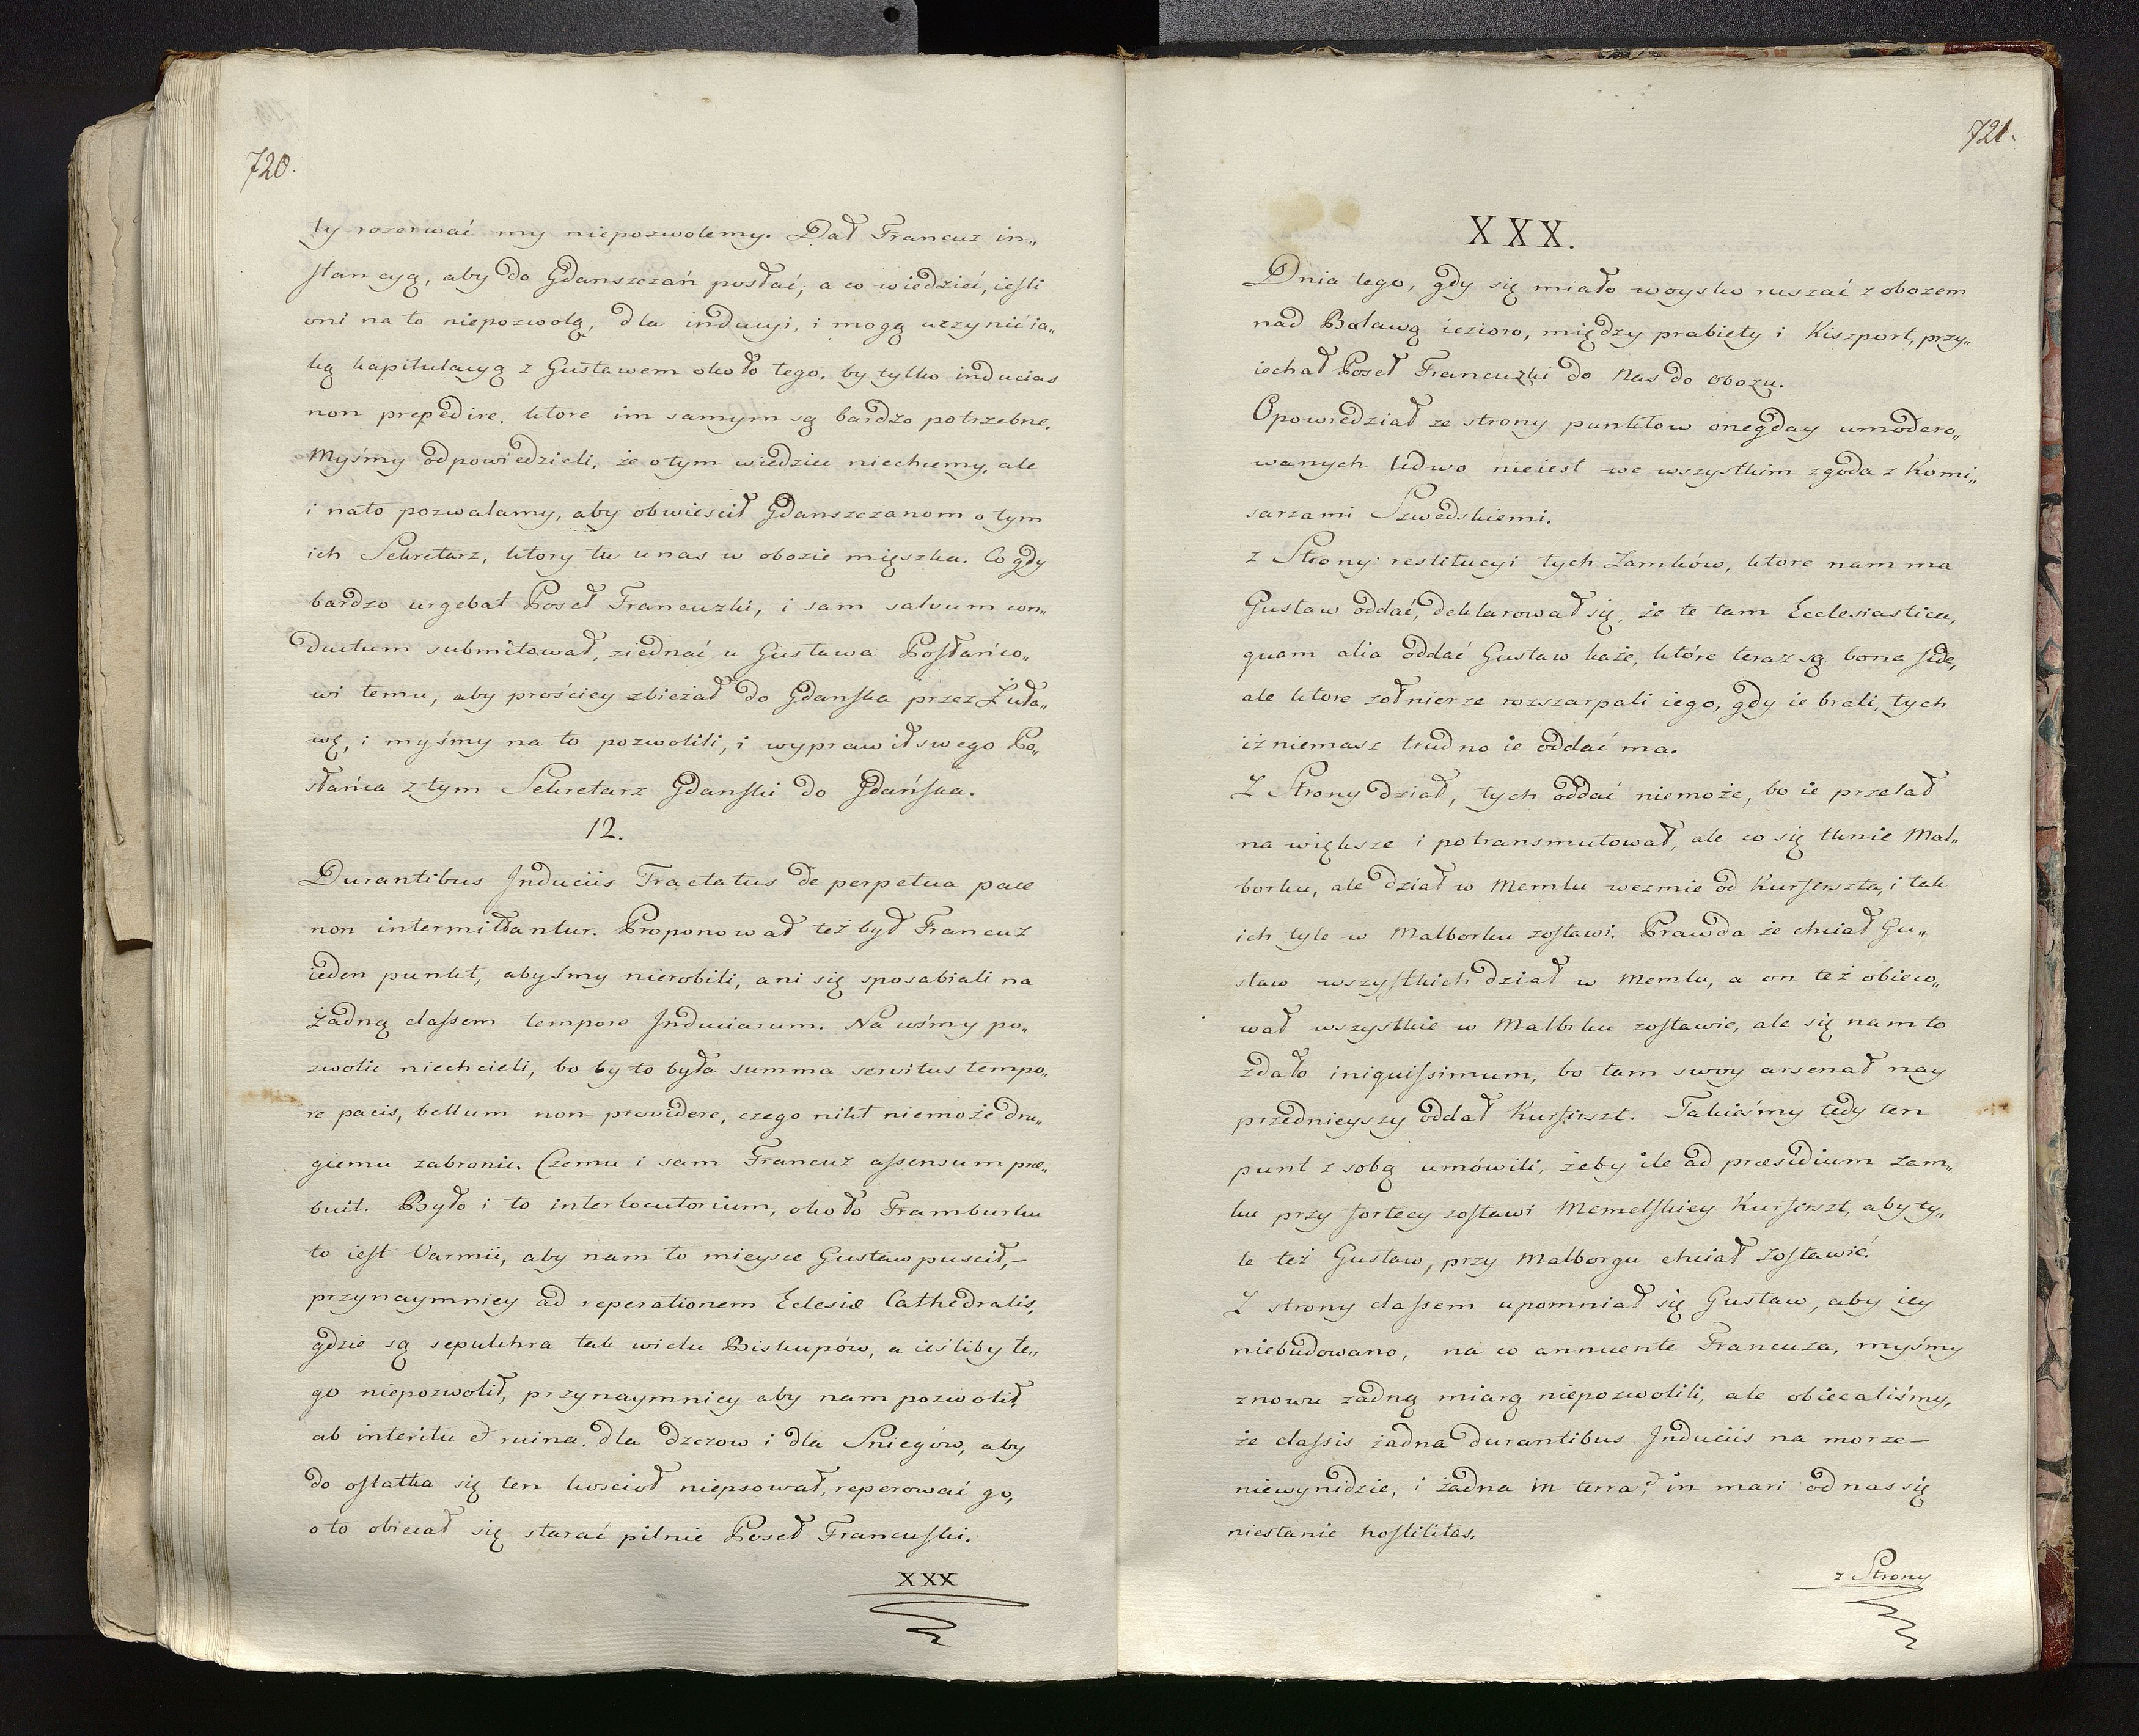 720.
ty rozerwać my niepozwolemy. Dał Francuz in„
stancyą, aby do Gdanszczań posłać, a co wiedzieć, iesli
oni na to niepozwolą, dla inducyi, i mogą uczynić ia„
ką kapitulacyą z Gustawem około tego, by tylko inducias
non prepedire, ktore im samym są bardzo potrzebne.
Myśmy odpowiedzieli, że o tym wiedziec niechcemy, ale
i nato pozwalamy, aby obwiescił Gdanszczanom o tym
ich Sekretarz, ktory tu unas w obozie mięszka. Co gdy
bardzo urgebat Poseł Francuzki, i sam salvum con„
ductum submitował, ziednać u Gustawa Posłańco„
wi temu, aby prościey zbieżał do Gdanska przez Żuła„
wę, i myśmy na to pozwolili, i wyprawił swego Po„
słańca z tym Sekretarz Gdanski do Gdańska.
12.
Durantibus Induciis Tractatus de perpetua pace
non intermittantur. Proponował też był Francuz
ieden punkt, abyśmy nierobili, ani się sposabiali na
żadną classem tempore Induciarum. Na cośmy po„
zwolić niechcieli, bo by to była summa servitus tempo„
re pacis, bellum non providere, czego nikt niemoże dru„
giemu zabronic. Czemu i sam Francuz assensum præ„
buit. Było i to interlocutorium, około Framburku
to iest Varmii, aby nam to mieysce Gustaw puscił,–
przynaymniey ad reperationem Eclesiæ Cathedralis,
gdzie są sepulchra tak wielu Biskupów, a ieśliby te„
go niepozwolił, przynaymniey aby nam pozwolił
ab interitu et ruina, dla dzczow i dla Sniegów, aby
do ostatka się ten kosciół niepsował, reperować go,
o to obiecał się starać pilnie Poseł Francuski.
XXX
721.
XXX.
Dnia tego, gdy się miało woysko ruszać z obozem
nad Balawą iezioro, między prabiety i Kiszport, przy„
iechał Poseł Francuzki do Nas do obozu.
Opowiedział ze strony punktow onegday umodero„
wanych ledwo nieiest we wszystkim zgoda z Komi„
sarzami Szwedskiemi.
z Strony restitucyi tych Zamków, ktore nam ma
Gustaw oddać, deklarował się, że te tam Ecclesiastica,
quam alia oddać Gustaw każe, które teraz są bona fide,
ale ktore zołnierze rozszarpali iego, gdy ie brali, tych
iż niemasz trudno ie oddać ma.
Z Strony dział, tych oddać niemoże, bo ie przelał
na większe i potransmutował, ale co się tknie Mal„
borku, ale dział w Memlu wezmie od Kurfirszta, i tak
ich tyle w Malborku zostawi. Prawda że chciał Gu„
staw wszystkich dział w Memlu, a on też obieco„
wał wszystkie w Malbrku zostawic, ale się nam to
zdało iniquissimum, bo tam swoy arsenał nay
przednieyszy oddał Kurfirszt. Takieśmy tedy ten
punt z sobą umówili, żeby ile ad præsidium zam„
ku przy fortecy zostawi Memelskiey Kurfirszt, aby ty„
le też Gustaw, przy Malborgu chciał zostawić.
Z strony classem upomniał się Gustaw, aby iey
niebudowano, na co annuente Francuza, myśmy
znowu zadną miarą niepozwolili, ale obiecaliśmy,
że classis żadna durantibus Induciis na morze–
niewynidzie, i żadna in terra, et in mari od nas się
niestanie hostilitas.
z Strony